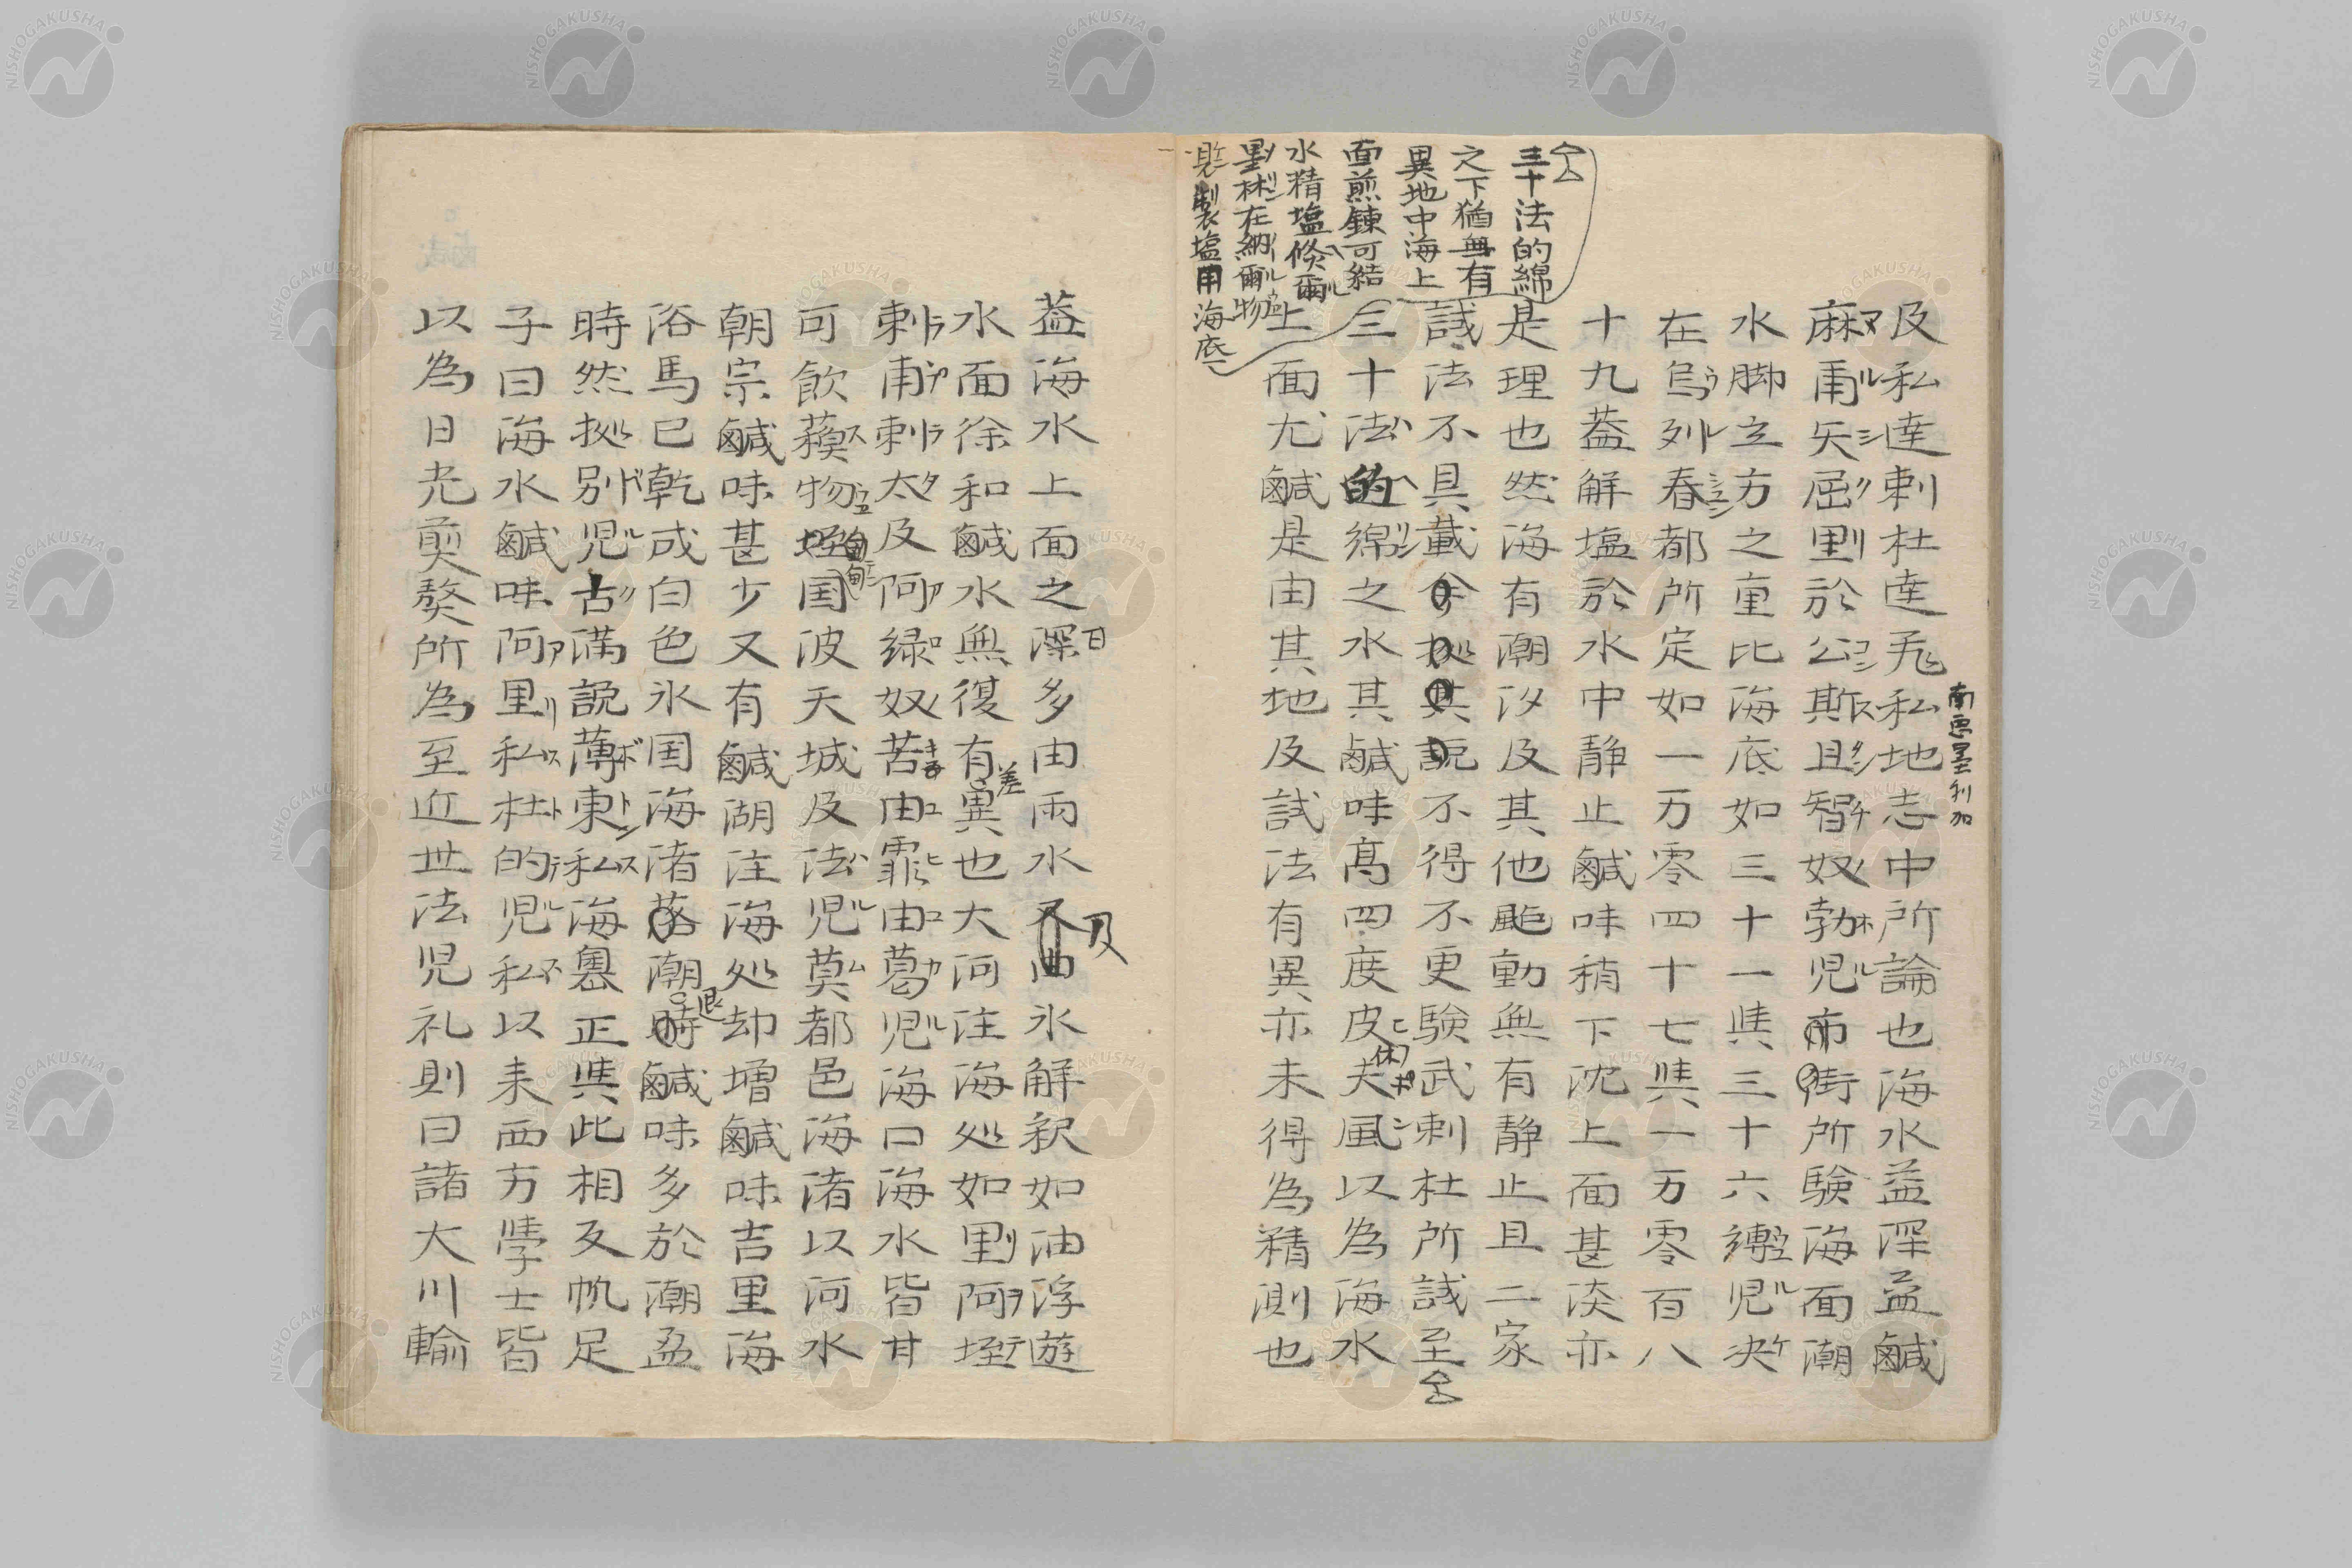 及私達剌杜達禿私地志中所論也海水益深益鹹
南亜墨利加
麻甫矢屈里於公斯且智奴勃児市街所験海面潮
マルシクリコンスタンチホル
水脚立方之重比海底如三十一與三十六䊵児决
在烏列春都所定如一万零四十七與一万零百八
ウレシュン
十九蓋解塩於水中静止鹹味稍下沈上面甚淡亦
是理也然海有潮汐及其他颱動無有静止且二家
試法不具載今拠其説不得不更験武剌杜所試至
三十法的綿之水其鹹味髙四度皮夫風以為海水
上面尤鹹是由其地及試法有異亦未得為精測也
三十法的綿
之下猶無有
異地中海上
面煎錬可結
水精塩倏爾
墨林在納爾物
製塩用海底
蓋海水上面之深多由雨水及氷解釈如油浮遊
水面徐和鹹水無復有異也大河注海処如里阿垤
差
剌甫剌太及阿緑奴苦由霏由葛児海口海水皆甘
可飲蘓物垤国波天城及法児莫都邑海渚以河水
朝宗鹹味甚少又有鹹湖注海処却増鹹味吉里海
浴馬已乾成白色氷国海渚落潮時鹹味多於潮盈
退
時然拠別児古満説薄東私海奥正與此相反帆足
子曰海水鹹味阿里私杜的児私以来西方学士皆
以為日光煎熬所為至近世法児礼則曰諸大川輸